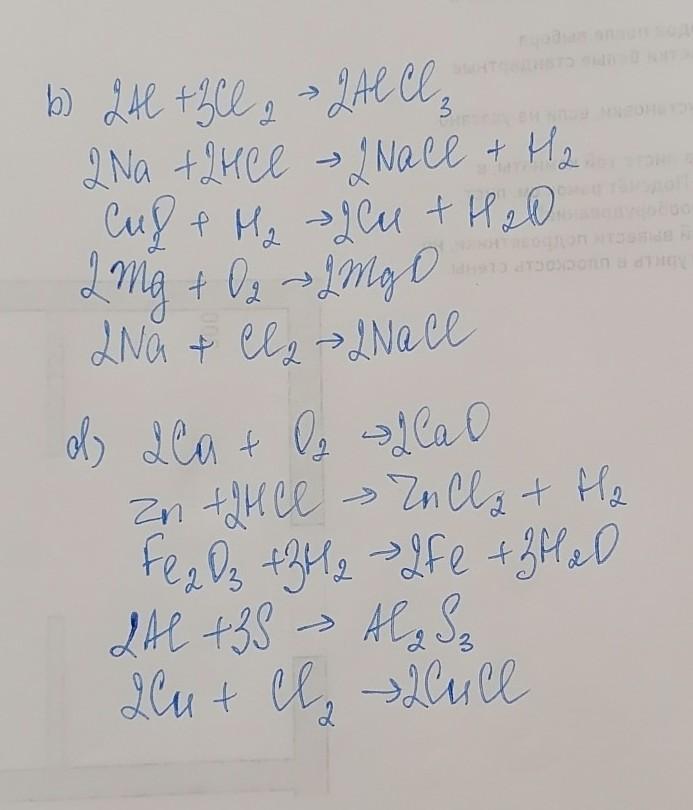 b) 2Al + 3Cl₂ → 2AlCl₃
2Na + 2HCl → 2NaCl + H₂
CuO₂ + H₂ → 2Cu + H₂O
2Mg + O₂ → 2MgO
2Na + Cl₂ → 2NaCl
d) 2Ca + O₂ → 2CaO
Zn + 2HCl → ZnCl₂ + H₂
Fe₂O₃ + 3H₂ → 2Fe + 3H₂O
2Al + 3S → Al₂S₃
2Cu + Cl₂ → 2CuCl